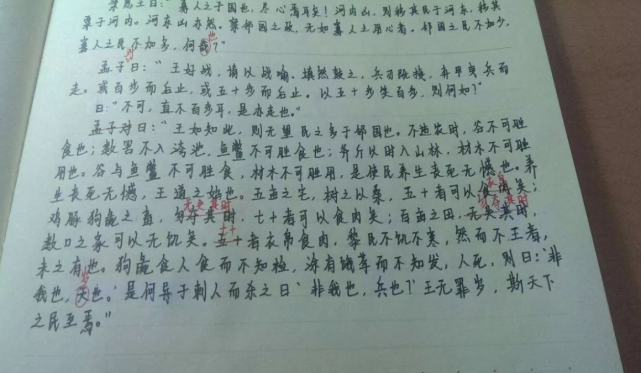 梁惠王曰：“寡人之于国也，尽心焉耳矣！河内凶，则移其民于河东，移其
粟于河内。河东凶亦然。察邻国之政，无如寡人之用心者。邻国之民不加少，
寡人之民不加多，何哉？”
也
孟子曰：“王好战，请以战喻。填然鼓之，兵刃既接，弃甲曳兵而
走。或百步而后止，或五十步而后止。以五十步笑百步，则何如？”
曰：“不可，直不百步耳，是亦走也。”
孟子对曰：“王如知此，则无望民之多于邻国也。不违农时，谷不可胜
食也；数罟不入洿池，鱼鳖不可胜食也；斧斤以时入山林，材木不可胜
用也。谷与鱼鳖不可胜食，材木不可胜用，是使民养生丧死无憾也。养
生丧死无憾，王道之始也。五亩之宅，树之以桑，五十者可以食肉矣；
无失其时
鸡豚狗彘之畜，勿夺其时，七十者可以食肉矣；百亩之田，无失其时，
勿夺其时
数口之家可以无饥矣。五十者衣帛食肉，黎民不饥不寒，然而不王者，
七十
未之有也。狗彘食人食而不知检，涂有饿莩而不知发，人死，则曰：‘非
我也，天也。’是何异于刺人而杀之曰‘非我也，兵也？’王无罪岁，斯天下
岁
之民至焉。”